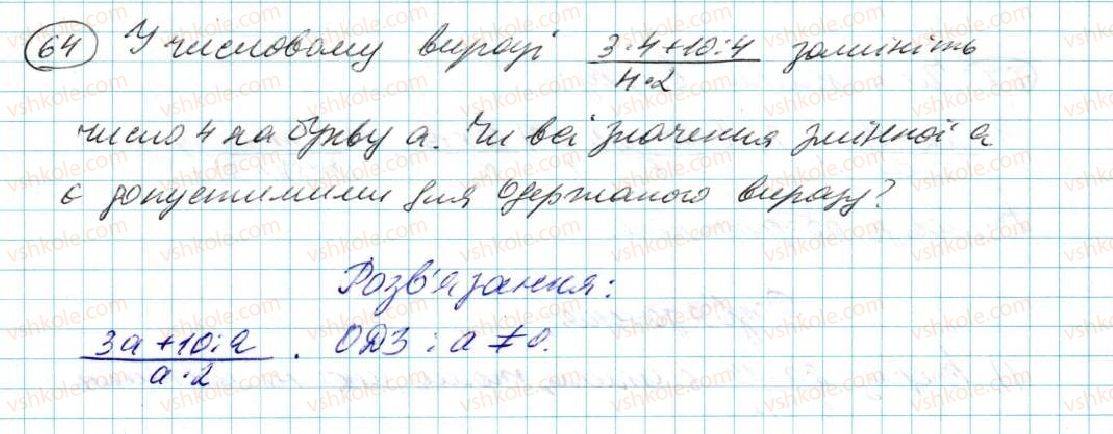 64 У числовому виразі (3·4+10:4)/(4·2) замініть
число 4 на букву а. Чи всі значення змінної а
є допустимими для одержаного виразу?
Розв'язання:
(3а+10:а)/(а·2). ОДЗ: а ≠ 0.